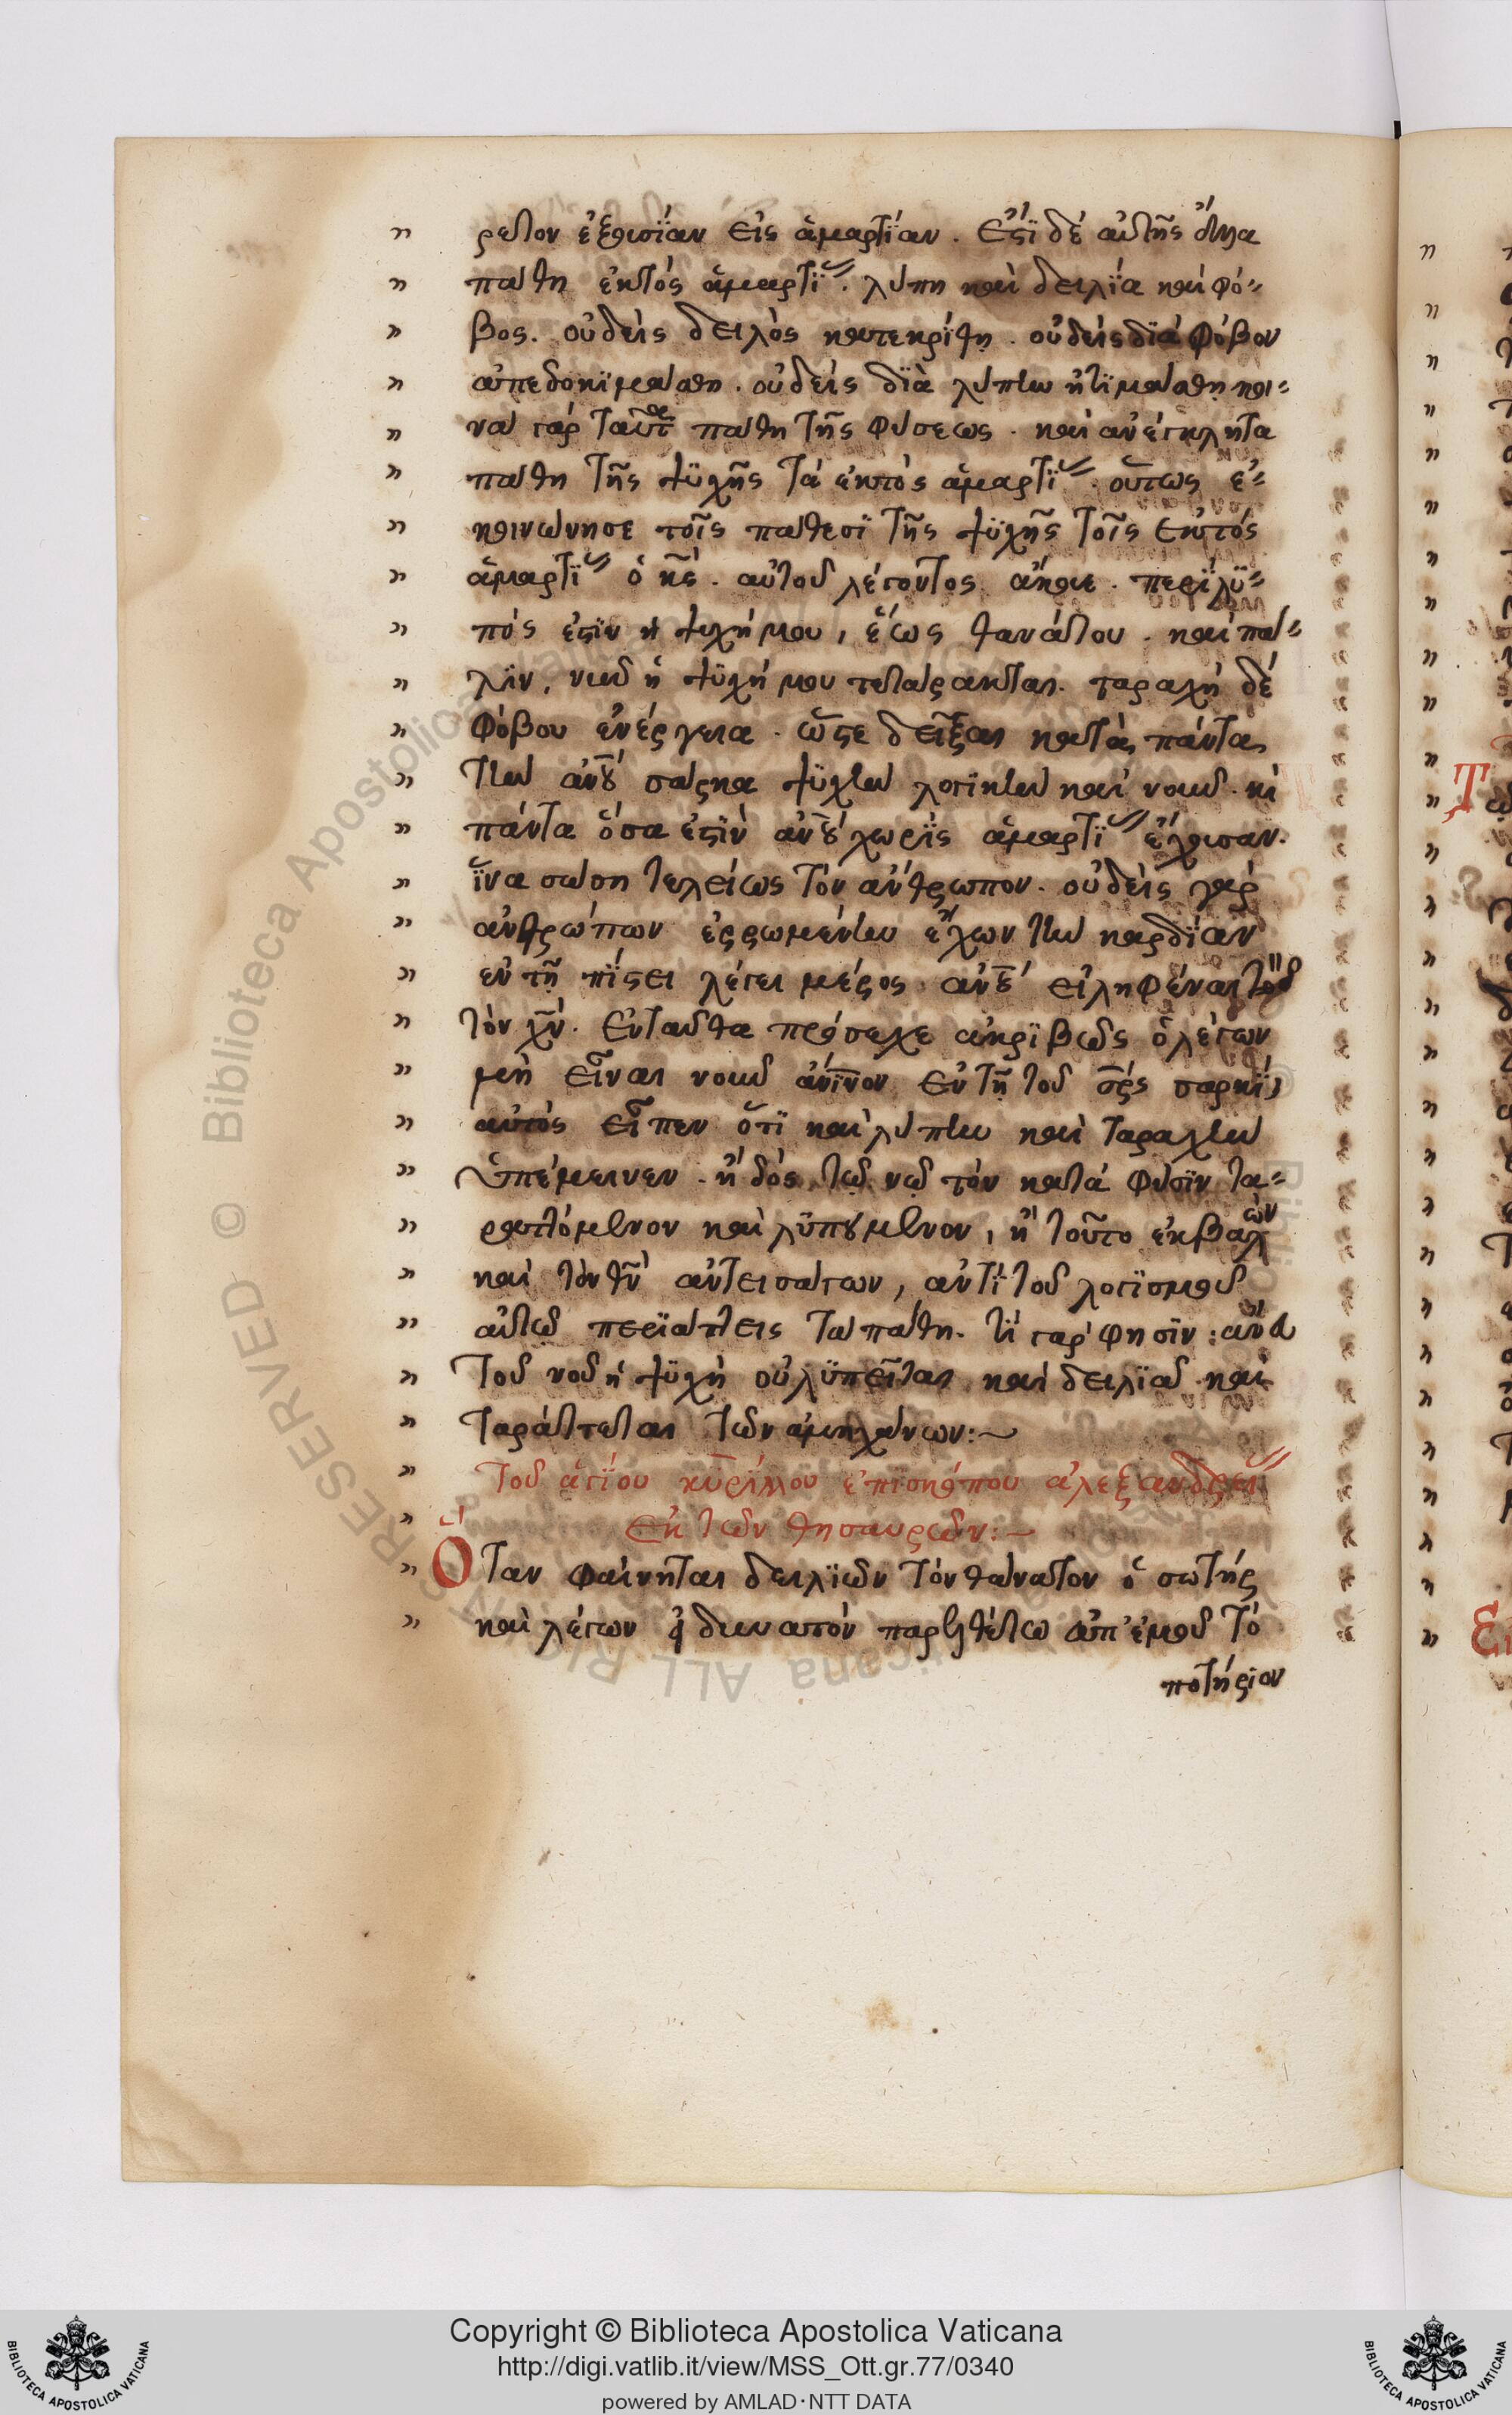 ρετον ἐξουσΐαν εἰς ἁμαρτΐαν. Ἔστϊ δὲ αὐτῆς ὄντα
πάθη ἐκτὸς ἁμαρτϊ. λύπη καὶ δειλΐα καὶ φό-
βος. οὐδεὶς δειλὸς κατεκρΐθη. οὐδεὶς διὰ φόβον
ἀπεδοκϊμάσθη. οὐδεὶς δϊὰ λύπην ἠτϊμάσθη κοι-
νὰ γὰρ ταῦτα πάθη τῆς φύσεως. καὶ ἀνέγκλητα
πάθη τῆς ψϋχῆς τὰ ἐκτὸς ἁμαρτϊ. οὕτως ἐ-
κοινώνησε τοῖς πάθεσϊ τῆς ψϋχῆς τοῖς ἐκτὸς
ἁμαρτϊ ὁ κς. αὐτοῦ λέγοντος ἄκουε. περΐλϋ-
πός ἐστϊν ἡ ψυχή μου, ἕως θανάτου. καὶ πά-
λϊν, νῦν ἡ ψϋχή μου τετάρακται. ταραχὴ δὲ
φόβου ἐνέργεια. ὥστε δεῖξαι κατὰ πάντα
τὴν ἀνου σάρκα ψϋχὴν λογϊκὴν καὶ νοῦν. κὶ
πάντα ὅσα ἐστϊν ἀνου χωρΐς ἁμαρτϊ ἔχουσαν.
ἵνα σώση τελείως τὸν ἄνθρωπον. οὐδεὶς γὰρ
ἀνθρώπων ἐρρωμένην ἔχων τὴν καρδΐαν
ἐν τῇ πΐστει λέγει μέρος ἀνου εἰληφέναι
τὸν χν. Ἐνταῦθα πρόσεχε ἀκρϊβῶς ὁ λέγων
μὴ εἶναι νοῦν ἀνινον ἐν τῇ τοῦ σρς σαρκΐ,
αὐτὸς εἶπεν ὅτϊ καὶ λύπην καὶ ταραχὴν
ὑπέμεινεν. ἢ δὸς τῷ νῷ τὸν κατὰ φύσϊν τα-
ραττόμενον καὶ λϋπούμενον, ἢ τοῦτο ἐκβαλών
καὶ τὸν θν ἀντεισάγων, ἀντΐ τοῦ λογϊσμοῦ
αὐτῷ περϊάπτεις τὰ πάθη. τΐ γάρ φησϊν: ἄνευ
τοῦ νοῦ ἡ ψϋχὴ οὐ λϋπεῖται καὶ δειλϊᾶ καὶ
ταράττεται τῶν ἀμηχάνων:~
Τοῦ ἁγΐου κϋρΐλλου ἐπϊσκόπου ἀλεξανδρεί
Ἐκ τῶν θησαυρῶν:~
Ὅταν φαίνηται δειλϊῶν τὸν θάνατον ὁ σωτὴρ
καὶ λέγων εἰ δυνατὸν παρελθέτω ἀπ' ἐμοῦ τὸ
ποτήριον
Copyright © Biblioteca Apostolica Vaticana
http://digi.vatlib.it/view/MSS_Ott.gr.77/0340
powered by AMLAD·NTT DATA